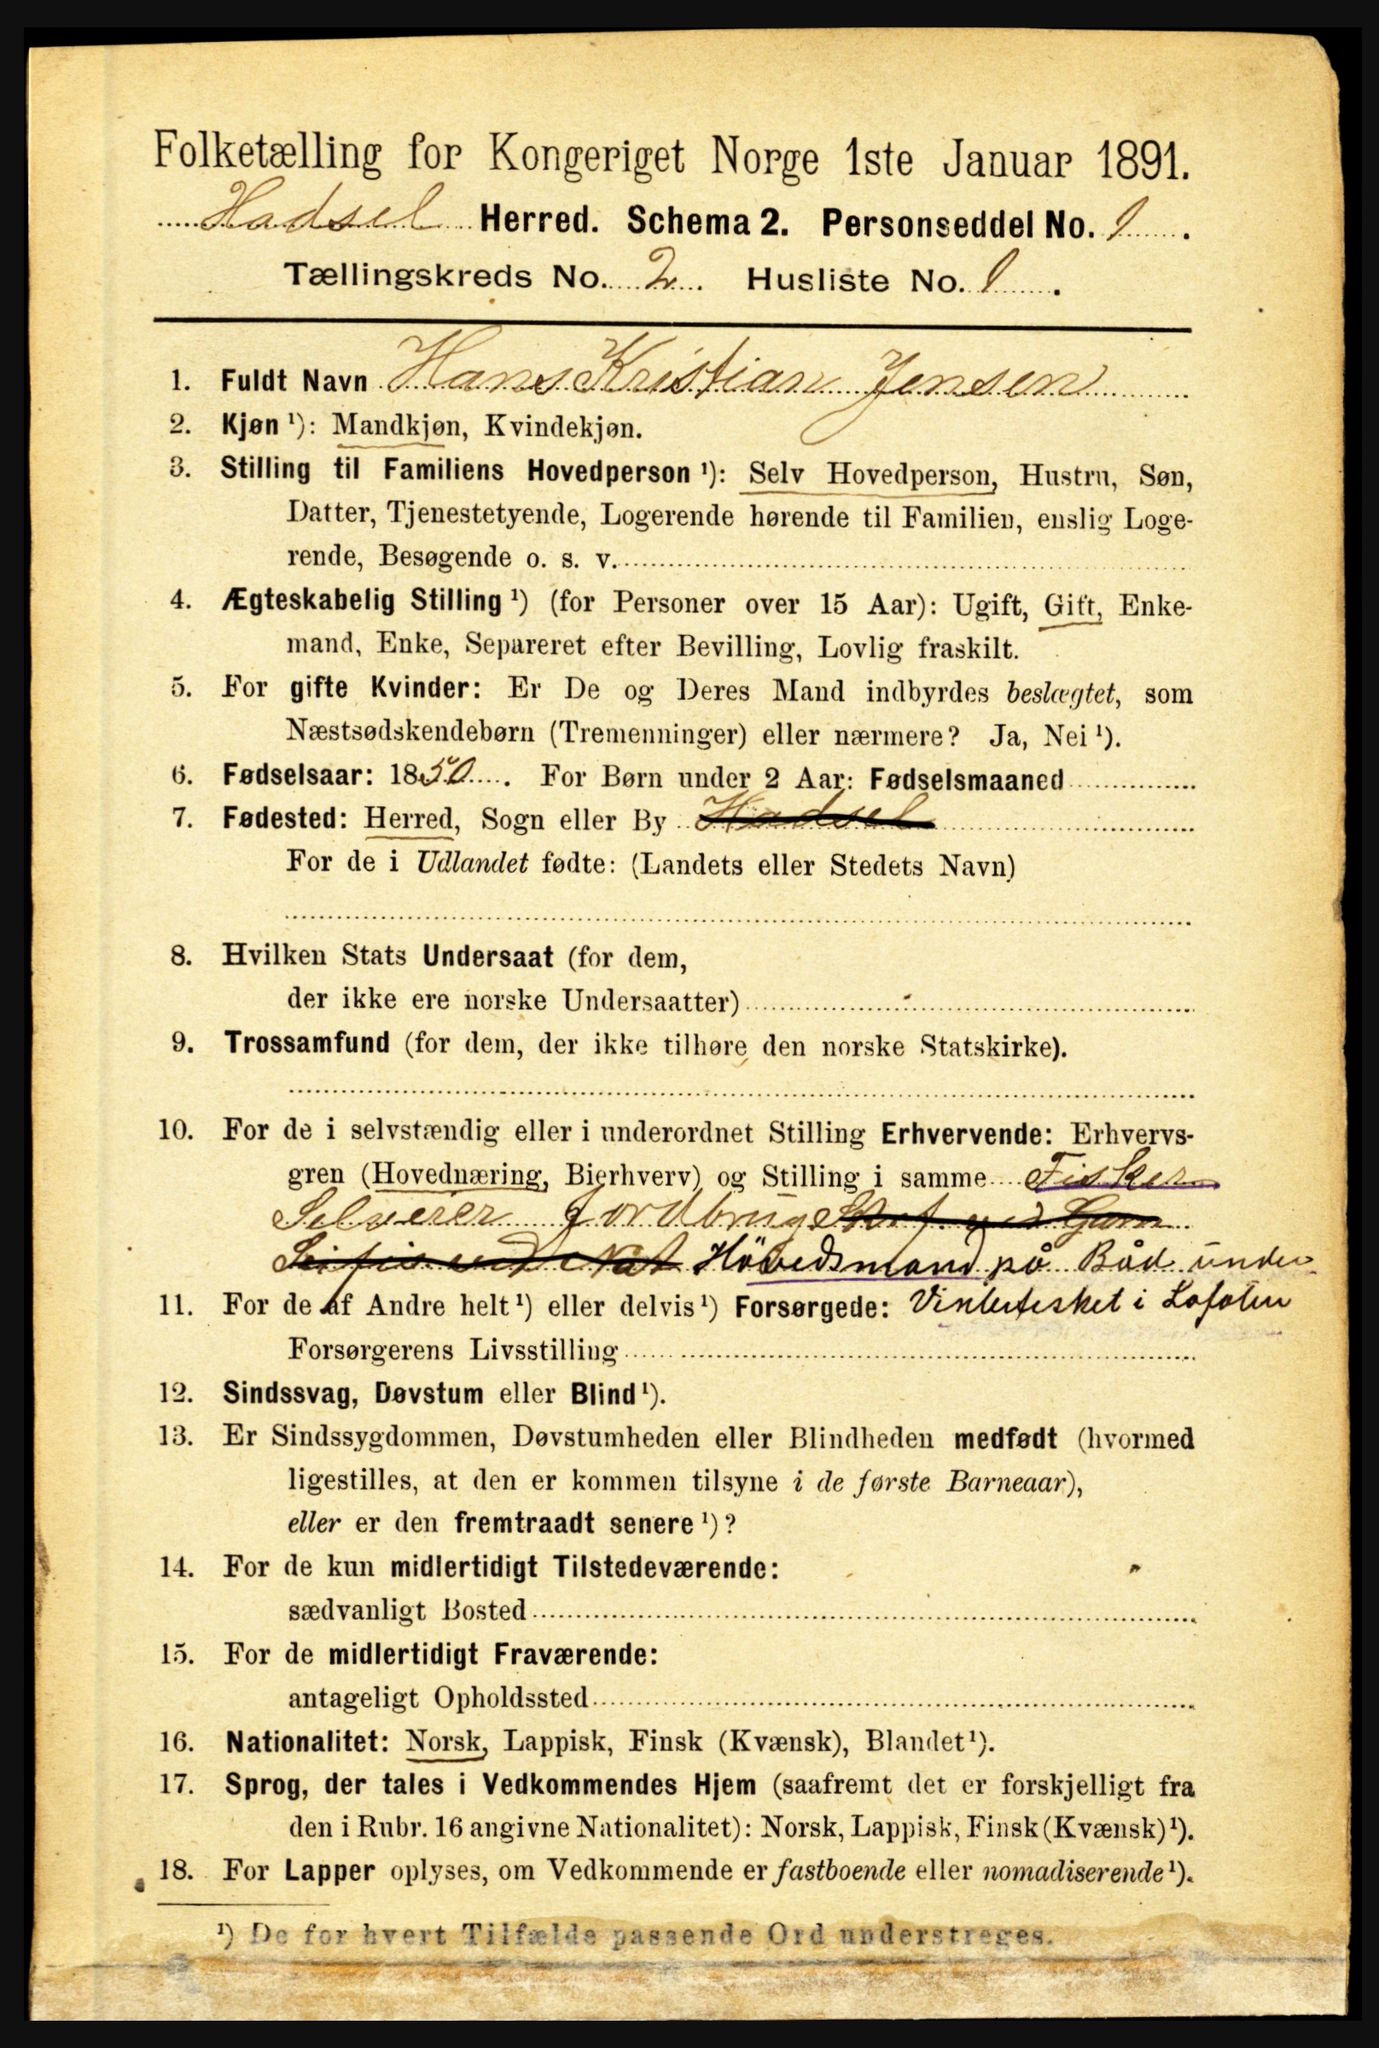 Folketælling for Kongeriget Norge 1ste Januar 1891.
Hadsel Herred. Schema 2. Personseddel No. 1.
Tællingskreds No. 2. Husliste No. 1.
1. Fuldt Navn Hans Kristian Jensen
2. Kjøn ¹): Mandkjøn, Kvindekjøn.
3. Stilling til Familiens Hovedperson ¹): Selv Hovedperson, Hustru, Søn,
Datter, Tjenestetyende, Logerende hørende til Familien, enslig Loge-
rende, Besøgende o. s. v.
4. Ægteskabelig Stilling ¹) (for Personer over 15 Aar): Ugift, Gift, Enke-
mand, Enke, Separeret efter Bevilling, Lovlig fraskilt.
5. For gifte Kvinder: Er De og Deres Mand indbyrdes beslægtet, som
Næstsødskendebørn (Tremenninger) eller nærmere? Ja, Nei ¹).
6. Fødselsaar: 1850. For Børn under 2 Aar: Fødselsmaaned
7. Fødested: Herred, Sogn eller By Hadsel
For de i Udlandet fødte: (Landets eller Stedets Navn)
8. Hvilken Stats Undersaat (for dem,
der ikke ere norske Undersaatter)
9. Trossamfund (for dem, der ikke tilhøre den norske Statskirke).
10. For de i selvstændig eller i underordnet Stilling Erhvervende: Erhvervs-
gren (Hovednæring, Bierhverv) og Stilling i samme Fisker
Selveier Jordbrug Skref ved Garn
Seifis ved Not Høvedsmand på Båd under
11. For de af Andre helt ¹) eller delvis ¹) Forsørgede: Vinterfisket i Lofoten
Forsørgerens Livsstilling
12. Sindssvag, Døvstum eller Blind ¹).
13. Er Sindssygdommen, Døvstumheden eller Blindheden medfødt (hvormed
ligestilles, at den er kommen tilsyne i de første Barneaar),
eller er den fremtraadt senere ¹)?
14. For de kun midlertidigt Tilstedeværende:
sædvanligt Bosted
15. For de midlertidigt Fraværende:
antageligt Opholdssted
16. Nationalitet: Norsk, Lappisk, Finsk (Kvænsk), Blandet ¹).
17. Sprog, der tales i Vedkommendes Hjem (saafremt det er forskjelligt fra
den i Rubr. 16 angivne Nationalitet): Norsk, Lappisk, Finsk (Kvænsk) ¹).
18. For Lapper oplyses, om Vedkommende er fastboende eller nomadiserende ¹).
¹) De for hvert Tilfælde passende Ord understreges.